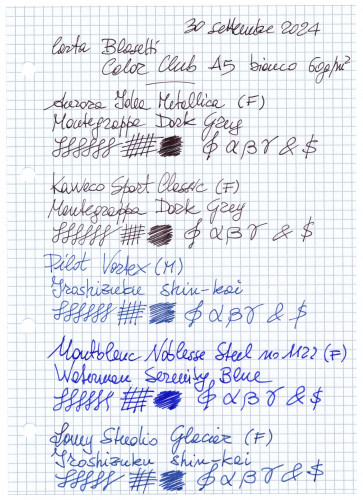 30 settembre 2024
Carta Blasetti
Color Club A5 bianco 60g/m²
Aurora Idea Metallica (F)
Montegrappa Dark Grey
ʃʃʃʃʃʃ ϕ α β γ & $
Kaweco Sport Classic (F)
Montegrappa Dark Grey
ʃʃʃʃʃʃ ϕ α β γ & $
Pilot Vortex (M)
Iroshizuku shin-kai
ʃʃʃʃʃʃ ϕ α β γ & $
Montblanc Noblesse Steel no 1122 (F)
Waterman Serenity Blue
ʃʃʃʃʃʃ ϕ α β γ & $
Lamy Studio Glacier (F)
Iroshizuku shin-kai
ʃʃʃʃʃʃ ϕ α β γ & $